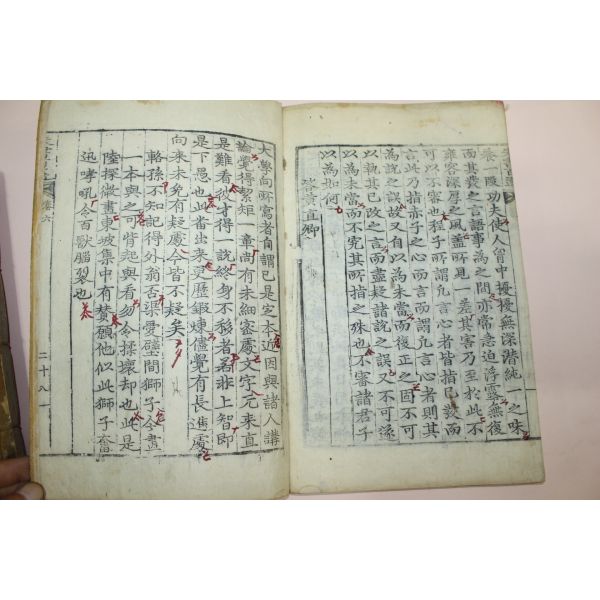 養一段功夫使人胷中擾擾無深潛純一之味
而其發之言語事為之間亦常急迫浮露無復
雍容深厚之風盖所見一差其害乃至於此不
可以不審也程子所謂凡言心者皆指已發而
言此乃指赤子之心而言而謂凡言心者則其
為說之誤故又自以為未當而復正之固不可
以執其已改之言而盡疑諸說之誤又不可遂
以為未當而不究其所指之殊也不審諸君子
以為如何
答黃直卿
大學向所寫者自謂已是定本近因與諸人講
論覺得絜矩一章尚有未細密處文字元來直
是難看彼才得一說終身不移者若非上知即
是下愚也此番出來更歷鍛煉儘覺有長進處
向來未免有疑處今皆不疑矣
輅孫不知記得外翁否渠愛壁間獅子今畫
一本與之可背起與看勿令揉壞却也此是
陸探微畫東坡集中有贊願他似此獅子奮
迅哮吼令百獸腦裂也
卷六
二十八